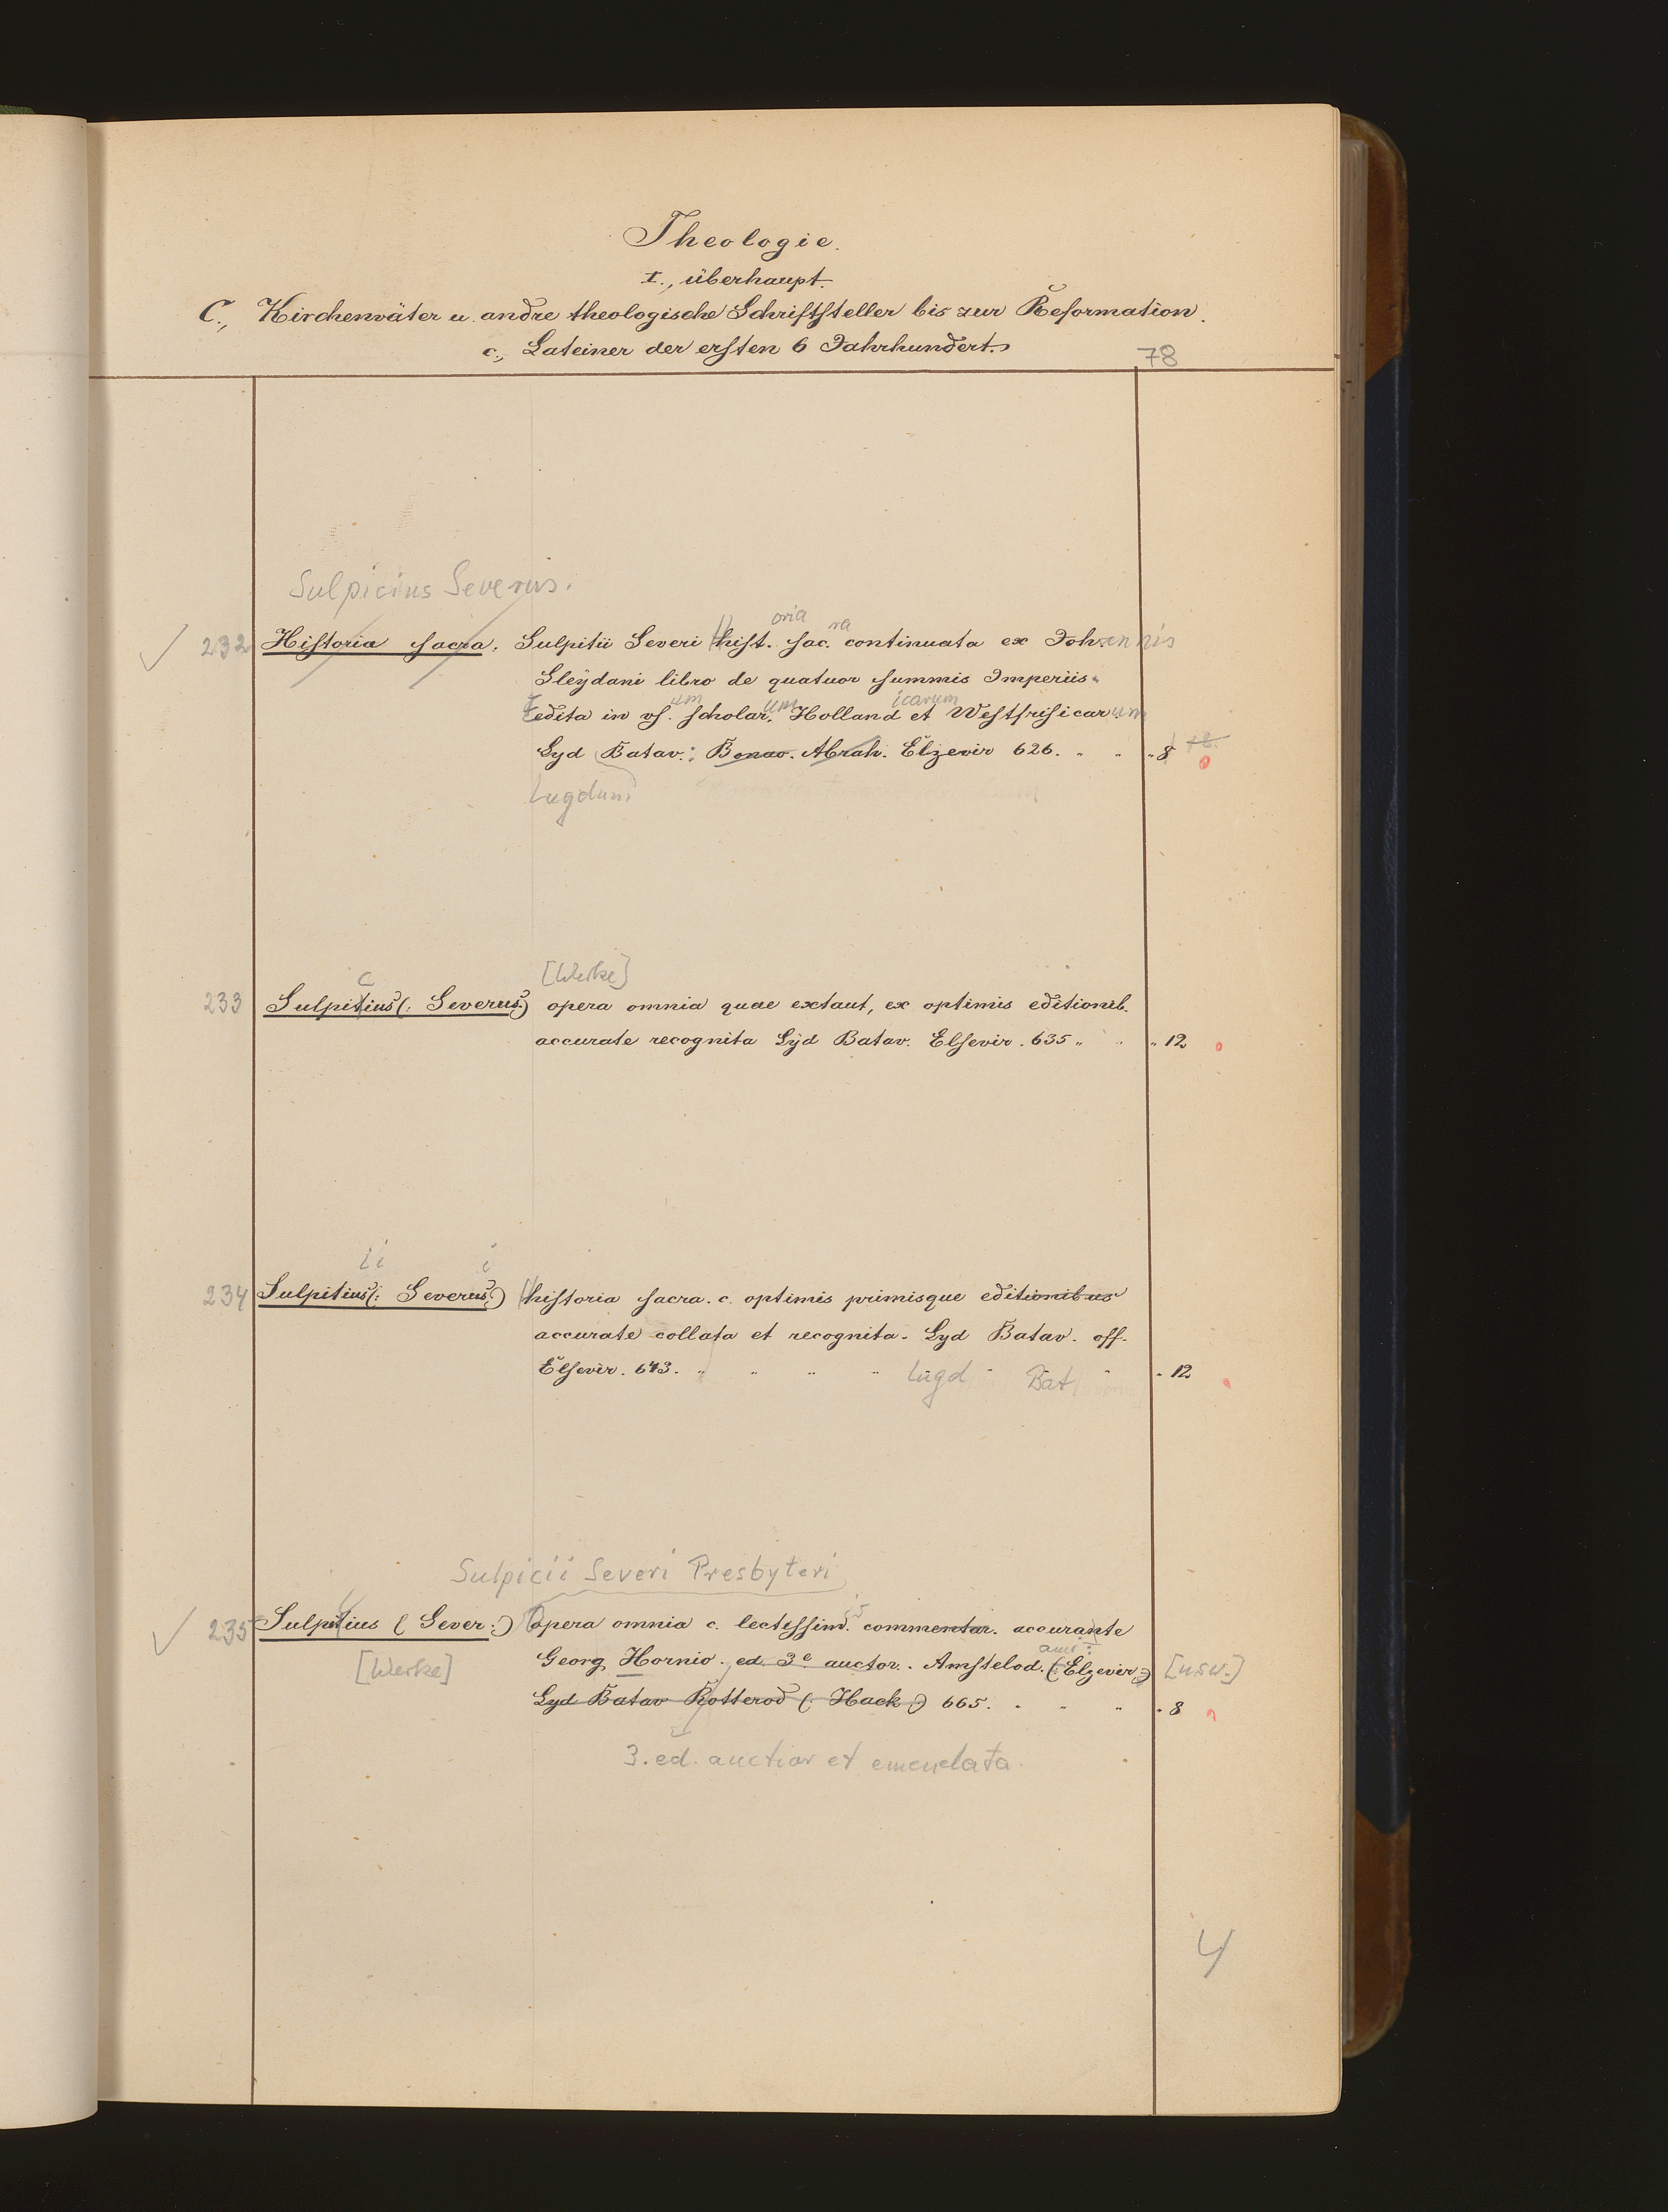 Theologie.
I., überhaupt.
C., Kirchenväter u. andre theologische Schriftsteller bis zur Reformation.
c., Lateiner der ersten 6 Jahrhundert.
78
Sulpicius Severus.
oria ra
232 Historia sacra. Sulpitii Severi hist. sac. continuata ex Johannis
Sleÿdani libro de quatuor summis Imperiis.
um um icarum
edita in us. scholar. Holland et Westfrisicarum
Lyd Batav.: Bonav. Abrah. Elzevir 626. " " " 8
Lugduni
[Werke]
c
233 Sulpitius (: Severus:) opera omnia quae extant, ex optimis editionib.
accurate recognita Lÿd Batav. Elsevir. 635 " " " 12
ii i
234 Sulpitius (: Severus:) historia sacra. c. optimis primisque editionibus
accurate collata et recognita. Lyd Batav. off.
Elsevir. 643. " " " " " " 12
Lugd Bat
Sulpicii Severi Presbyteri
235 Sulpitius (Sever:) opera omnia c. lectissim. commentar. accurante
is
[Werke] Georg Hornio. ed. 3e auctor. Amstelod. (: Elzevir:) [usw.]
Lyd Batav Rotterod (: Hack:) 665. " " " " 8
3. ed. auctior et emendata.
4